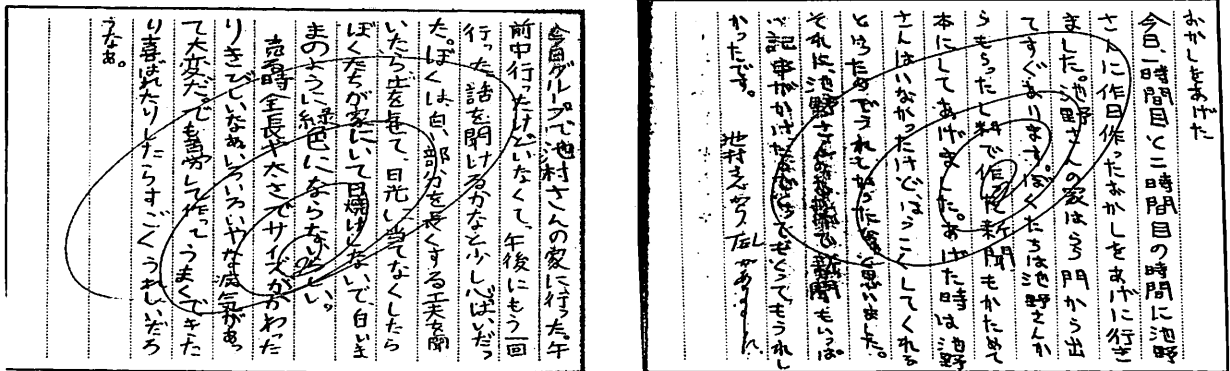 おかしをあげた
今日、一時間目と二時間目の時間に池野
さんに作日作ったおかしをあげに行き
ました。池野さんの家はうら門から出
てすぐあいます。ぼくたちは池野さんか
らもらったし料で作った新聞もかためて
本にしてあげました。あげた時は池野
さんはいなかったけど
とろったのでうれしかったなあと思いました。
それに、池野さん 新聞もいっぱ
い記事がかけた とってもうれし
かったです。
今日グループで池村さんの家に行った。午
前中行ったけどいなくて、午後にもう一回
行った。話を聞けるかなと少し心ぱいだっ
た。ぼくは、白い部分を長くする工夫を聞
いたら土をもって、日光に当てなくしたら
ぼくたちが家にいて日焼けしないで、白いま
まのように緑色にならないらしい。
売る時全長や太さでサイズがかわった
りきびしいなあ。いろいろいやな病気があっ
て大変だ。でも苦労して作ってうまくできた
り喜ばれたりしたらすごくうれしいだろ
うなあ。